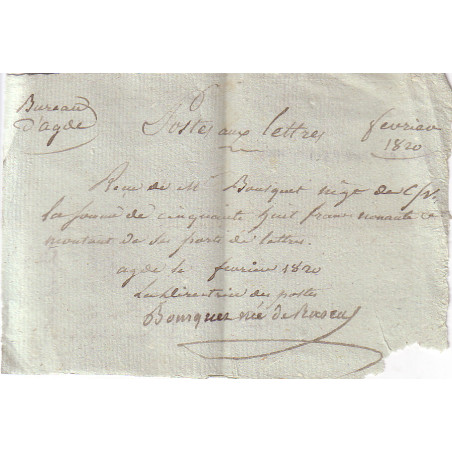 Bureau
d'agde
Postes aux lettres
fevrier
1820
Recu de Mr Bousquet négt de
la somme de cinquante huit francs nonante c
montant de ses ports de lettres.
agde le fevrier 1820
La directrice des postes
Bourguer née de